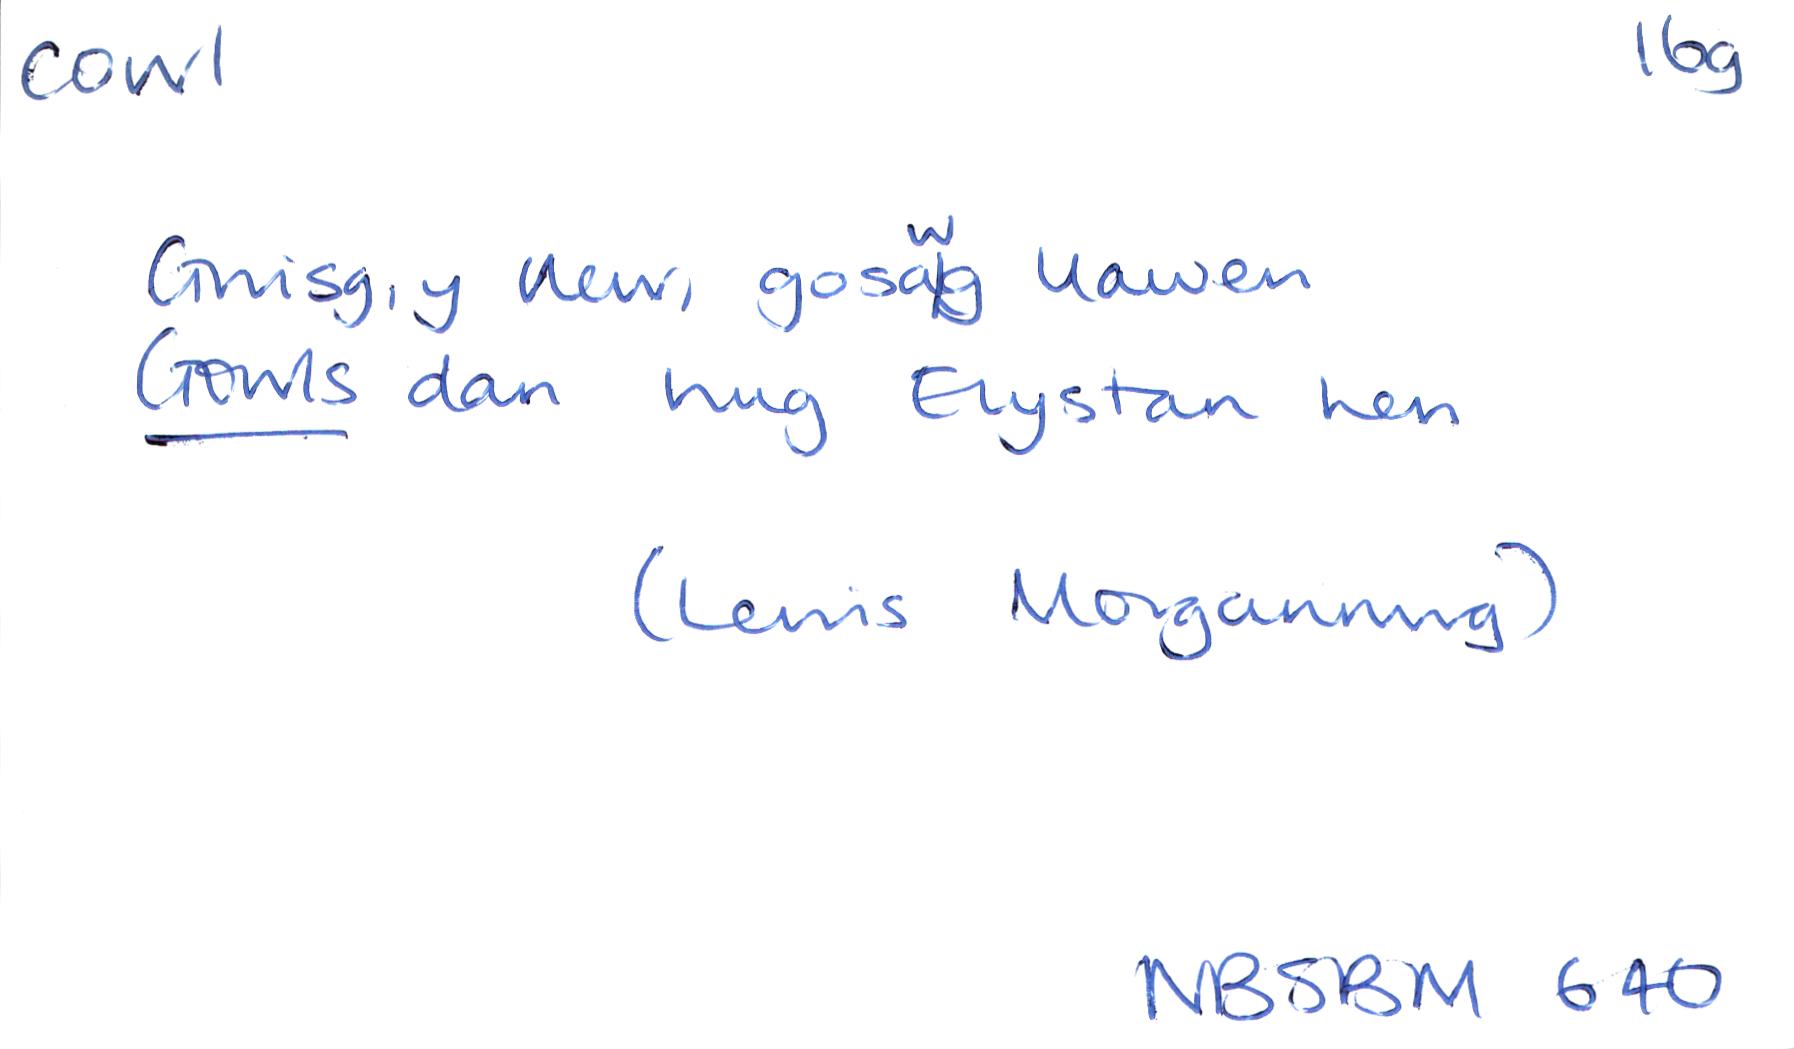 cowl 16g
Gwisg, y llew, gosawg llawen
Gowls dan hug Elystan hen
(Lewis Morgannwg)
NBSBM 640